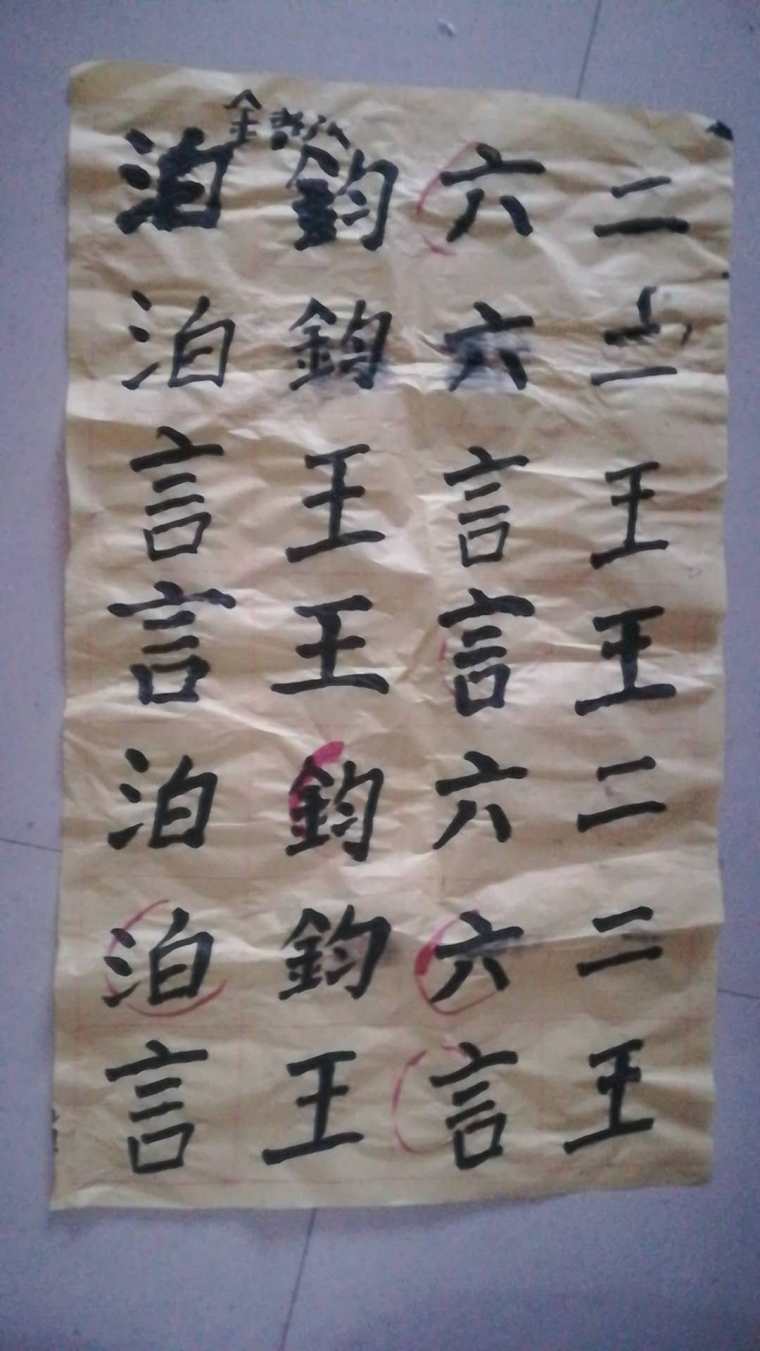 二二王王二二王
六六言言六六言
鈞鈞王王鈞鈞王
泊泊言言泊泊言